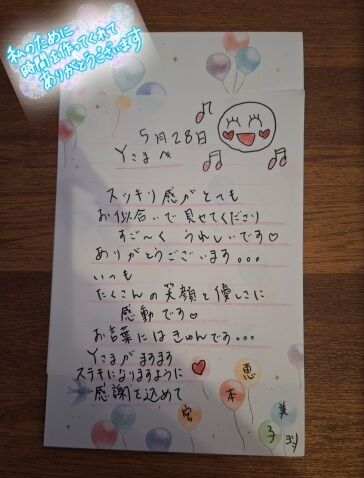 私のために
時間を作ってくれて
ありがとうございます
5月28日
Yさまへ
スッキリ感がとても
お似合いで見せてくださり
すご〜く うれしいです♡
ありがとうございます。。。
いつも
たくさんの笑顔と優しさに
感動です♡
お言葉にはきゅんです。。。
Yさまがますます
ステキになりますように
感謝を込めて
宮本恵美子